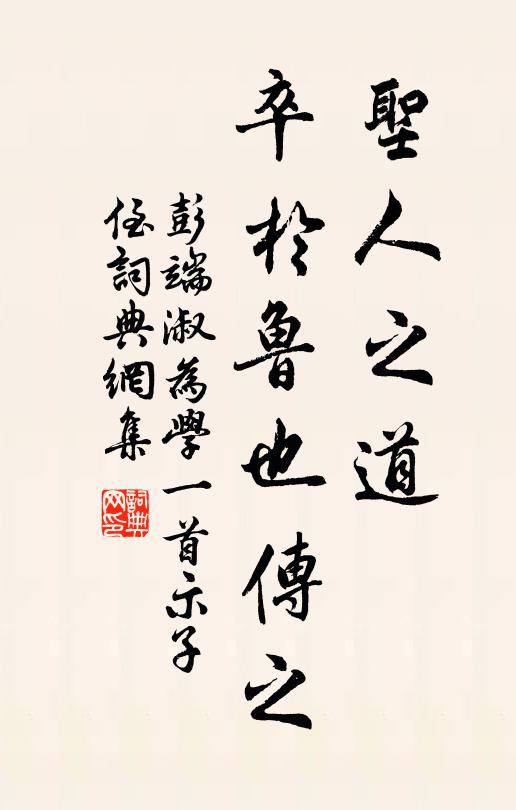 聖人之道
卒於魯也傳之
彭端淑為學一首示子
侄詞典網集
詞典网印